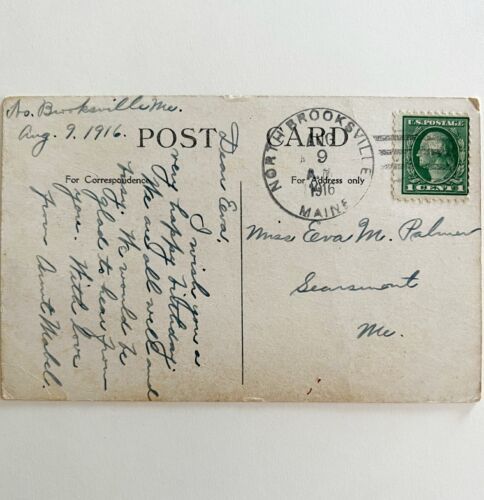 No. Brooksville Me.
Aug. 9. 1916.
POST CARD
For Correspondence
For Address only
NORTH BROOKSVILLE
AUG
9
A.M.
1916
MAINE
U.S. POSTAGE
1 CENT 1
Dear Eva,
I wish you a
very happy birthday.
We are all well and
busy. We would be
glad to hear from
you. With love
from Aunt Mabel.
Miss Eva M. Palmer
Searsmont
Me.